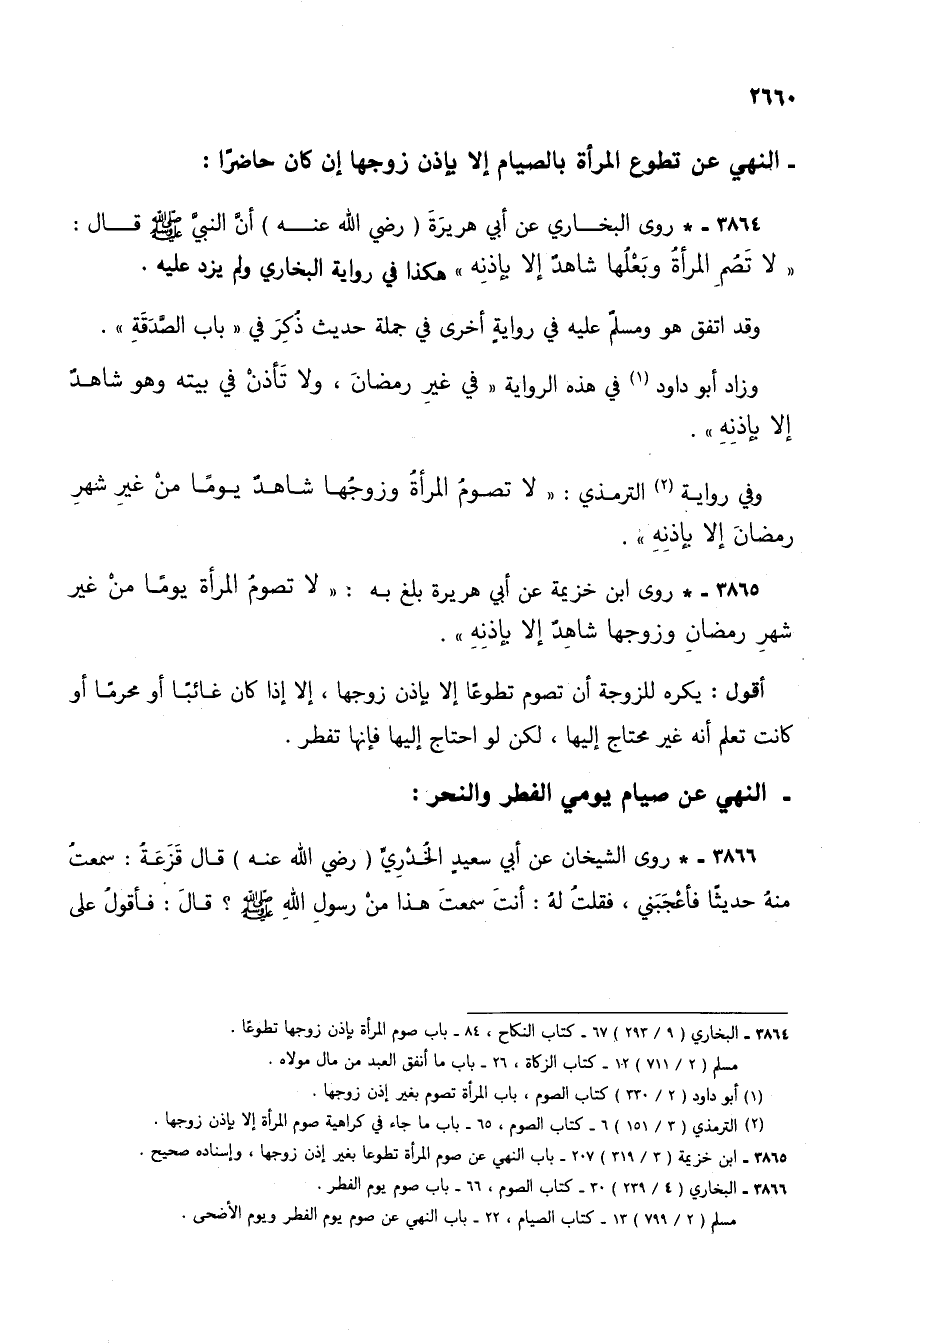 ٢٦٦٠
ـ النهي عن تطوع المرأة بالصيام إلا بإذن زوجها إن كان حاضرًا :
٣٨٦٤ ـ * روى البخـــاري عن أبي هريرَةَ ( رضي الله عنـــه ) أنَّ النبيَّ ﷺ قـــال :
« لا تَصُمِ المرأةُ وبَعْلُها شاهدٌ إلا بإذنِهِ » هكذا في رواية البخاري ولم يزد عليه .
وقد اتفق هو ومسلمٌ عليه في روايةٍ أخرى في جملة حديث ذُكِرَ في « باب الصَّدَقَةِ » .
وزاد أبو داود (١) في هذه الرواية « في غيرِ رمضانَ ، ولا تَأذنْ في بيته وهو شاهـدٌ
إلا بإذنِهِ » .
وفي روايـة (٢) الترمـذي : « لا تصـومُ المرأةُ وزوجُهـا شـاهـدٌ يـومًـا منْ غيرِ شهرِ
رمضانَ إلا بإذنِهِ » .
٣٨٦٥ ـ * روى ابن خزيمة عن أبي هريرة بلغ بـه : « لا تصومُ المرأة يومًـا منْ غير
شهرِ رمضانِ وزوجها شاهدٌ إلا بإذنِهِ » .
أقول : يكره للزوجة أن تصوم تطوعًا إلا بإذن زوجها ، إلا إذا كان غـائبًـا أو محرمًـا أو
كانت تعلم أنه غير محتاج إليها ، لكن لو احتاج إليها فإنها تفطر .
ـ النهي عن صيام يومي الفطر والنحر :
٣٨٦٦ ـ * روى الشيخان عن أبي سعيدٍ الخُـدْرِيِّ ( رضي الله عنـه ) قـال قَزَعَةُ : سمعتُ
منهُ حديثًا فأعْجَبَني ، فقلتُ لهُ : أنتَ سمعتَ هـذا منْ رسولِ اللهِ ﷺ ؟ قـالَ : فـأقولُ على
٣٨٦٤ ـ البخاري ( ٩ / ٢٩٣ ) ٦٧ ـ كتاب النكاح ، ٨٤ ـ باب صوم المرأة بإذن زوجها تطوعًا .
مسلم ( ٢ / ٧١١ ) ١٢ ـ كتاب الزكاة ، ٢٦ ـ باب ما أنفق العبد من مال مولاه .
(١) أبو داود ( ٢ / ٣٣٠ ) كتاب الصوم ، باب المرأة تصوم بغير إذن زوجها .
(٢) الترمذي ( ٣ / ١٥١ ) ٦ ـ كتاب الصوم ، ٦٥ ـ باب ما جاء في كراهية صوم المرأة إلا بإذن زوجها .
٣٨٦٥ ـ ابن خزيمة ( ٣ / ٣١٩ ) ٢٠٧ ـ باب النهي عن صوم المرأة تطوعا بغير إذن زوجها ، وإسناده صحيح .
٣٨٦٦ ـ البخاري ( ٤ / ٢٣٩ ) ٣٠ ـ كتاب الصوم ، ٦٦ ـ باب صوم يوم الفطر .
مسلم ( ٢ / ٧٩٩ ) ١٣ ـ كتاب الصيام ، ٢٢ ـ باب النهي عن صوم يوم الفطر ويوم الأضحى .